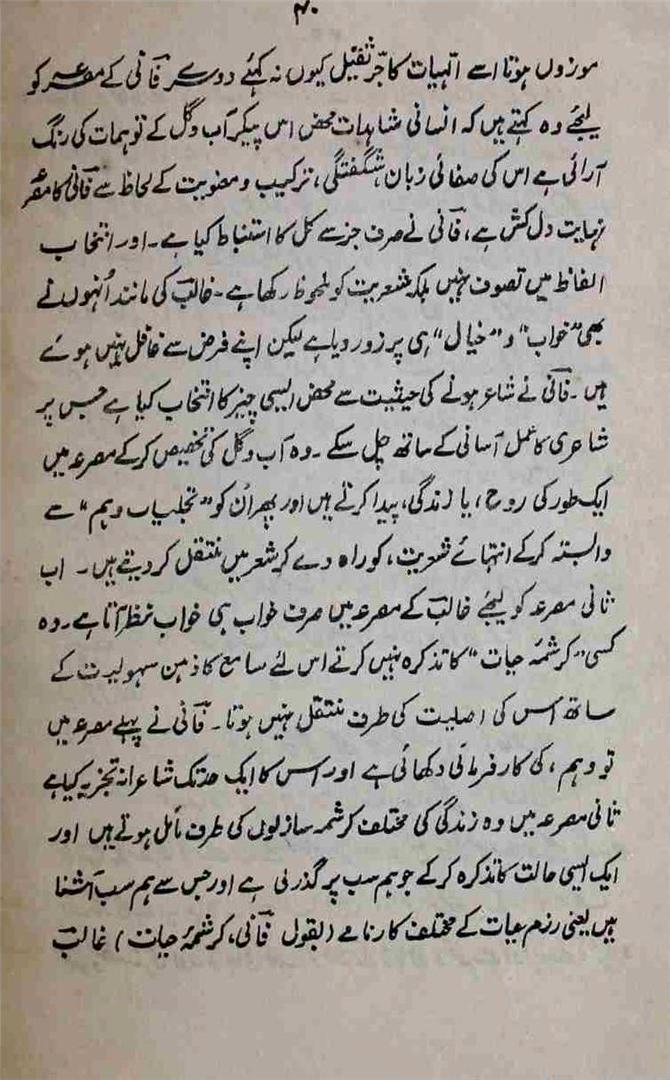 ۴۰
موزوں ہوتا اسے الٰہیات کا جرِّ ثقیل کیوں نہ کہئے دوسرے فآنی کے مصرعہ کو
لیجئے وہ کہتے ہیں کہ انسانی مشاہدات محض اس پیکر آب و گل کے توہمات کی رنگ
آرائی ہے اس کی صفائی زبان، شگفتگی، ترکیب و معنویت کے لحاظ سے فآنی کا مصرعہ
نہایت دل کش ہے، فآنی نے صرف جز سے کل کا استنباط کیا ہے۔ اور انتخاب
الفاظ میں تصوف نہیں بلکہ شعریت کو ملحوظ رکھا ہے۔ غالبؔ کی مانند اُنہوں نے
بھی "خواب" و "خیال" ہی پر زور دیا ہے لیکن اپنے فرض سے غافل نہیں ہوئے
ہیں۔ فآنی نے شاعر ہونے کی حیثیت سے محض ایسی چیز کا انتخاب کیا ہے جس پر
شاعری کا عمل آسانی کے ساتھ چل سکے۔ وہ آب و گل کی تخصیص کر کے مصرعہ میں
ایک طور کی روح، یا زندگی، پیدا کرتے ہیں اور پھر اُن کو "تجلیات وہم" سے
وابستہ کر کے انتہائے شعریت، کو راہ دے کر شعر میں منتقل کر دیتے ہیں۔ اب
ثانی مصرعہ کو لیجئے غالبؔ کے مصرعہ میں صرف خواب ہی خواب نظر آتا ہے۔ وہ
کسی "کرشمۂ حیات" کا تذکرہ نہیں کرتے اس لئے سامع کا ذہن سہولیت کے
ساتھ اس کی اصلیت کی طرف منتقل نہیں ہوتا۔ فآنی نے پہلے مصرعہ میں
تو وہم، کی کارفرمائی دکھائی ہے اور اس کا ایک حد تک شاعرانہ تجزیہ کیا ہے
ثانی مصرعہ میں وہ زندگی کی مختلف کرشمہ سازیوں کی طرف مائل ہوتے ہیں اور
ایک ایسی حالت کا تذکرہ کر کے جو ہم سب پر گذرتی ہے اور جس سے ہم سب آشنا
ہیں یعنی رزم حیات کے مختلف کارنامے (بقول فآنی، کرشمۂ حیات) غالبؔ